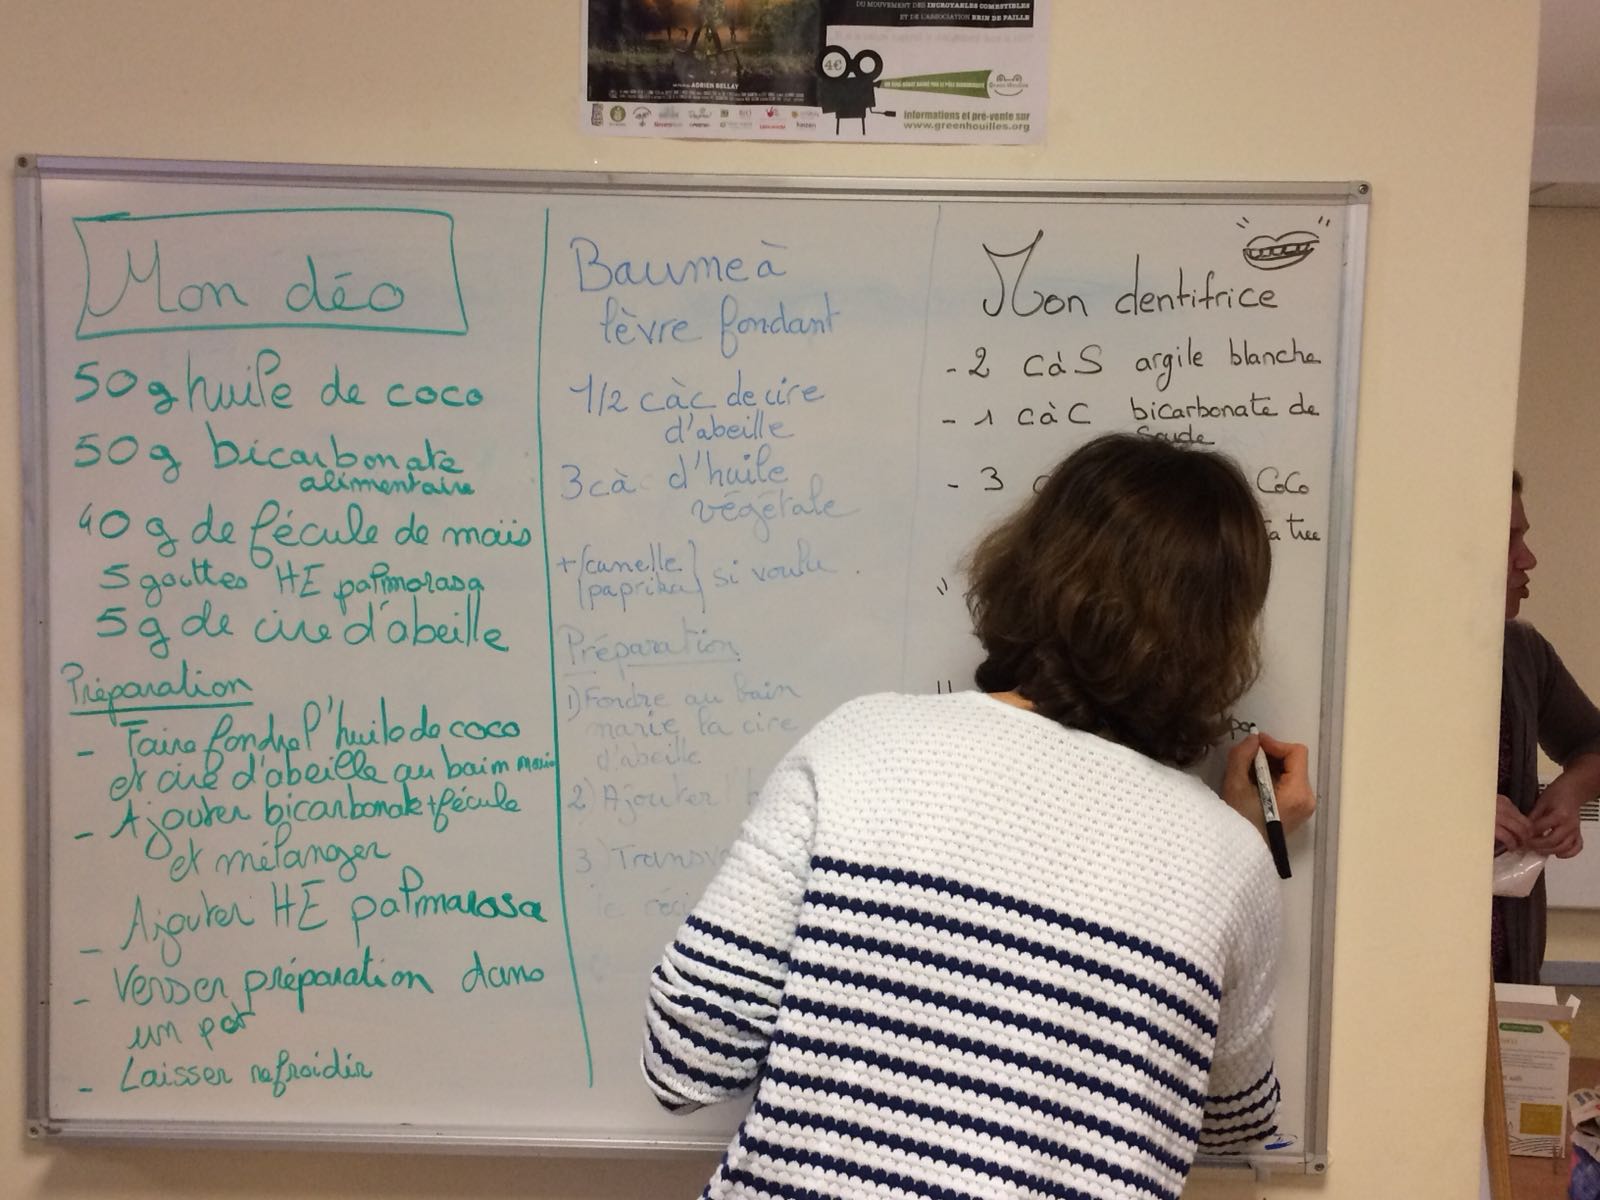 DU MOUVEMENT DES INCROYABLES COMESTIBLES
ET DE L'ASSOCIATION BRIN DE PAILLE
4€
ADRIEN BELLAY
Informations et pré-vente sur
www.greenhouilles.org
Mon déo
50g huile de coco
50g bicarbonate
alimentaire
40 g de fécule de maïs
5 gouttes HE palmarosa
5 g de cire d'abeille
Préparation
- Faire fondre l'huile de coco
et cire d'abeille au bain marie
- Ajouter bicarbonate + fécule
et mélanger
- Ajouter HE palmarosa
- Verser préparation dans
un pot
- Laisser refroidir
Baume à
lèvre fondant
1/2 càc de cire
d'abeille
3 cà d'huile
végétale
+ (canelle
(paprika) si voulu.
Préparation
1) Fondre au bain
marie la cire
d'abeille
2) Ajouter
3) Transv
le réci
Mon dentifrice
- 2 CàS argile blanche
- 1 CàC bicarbonate de
Soude
- 3 CoCo
tree